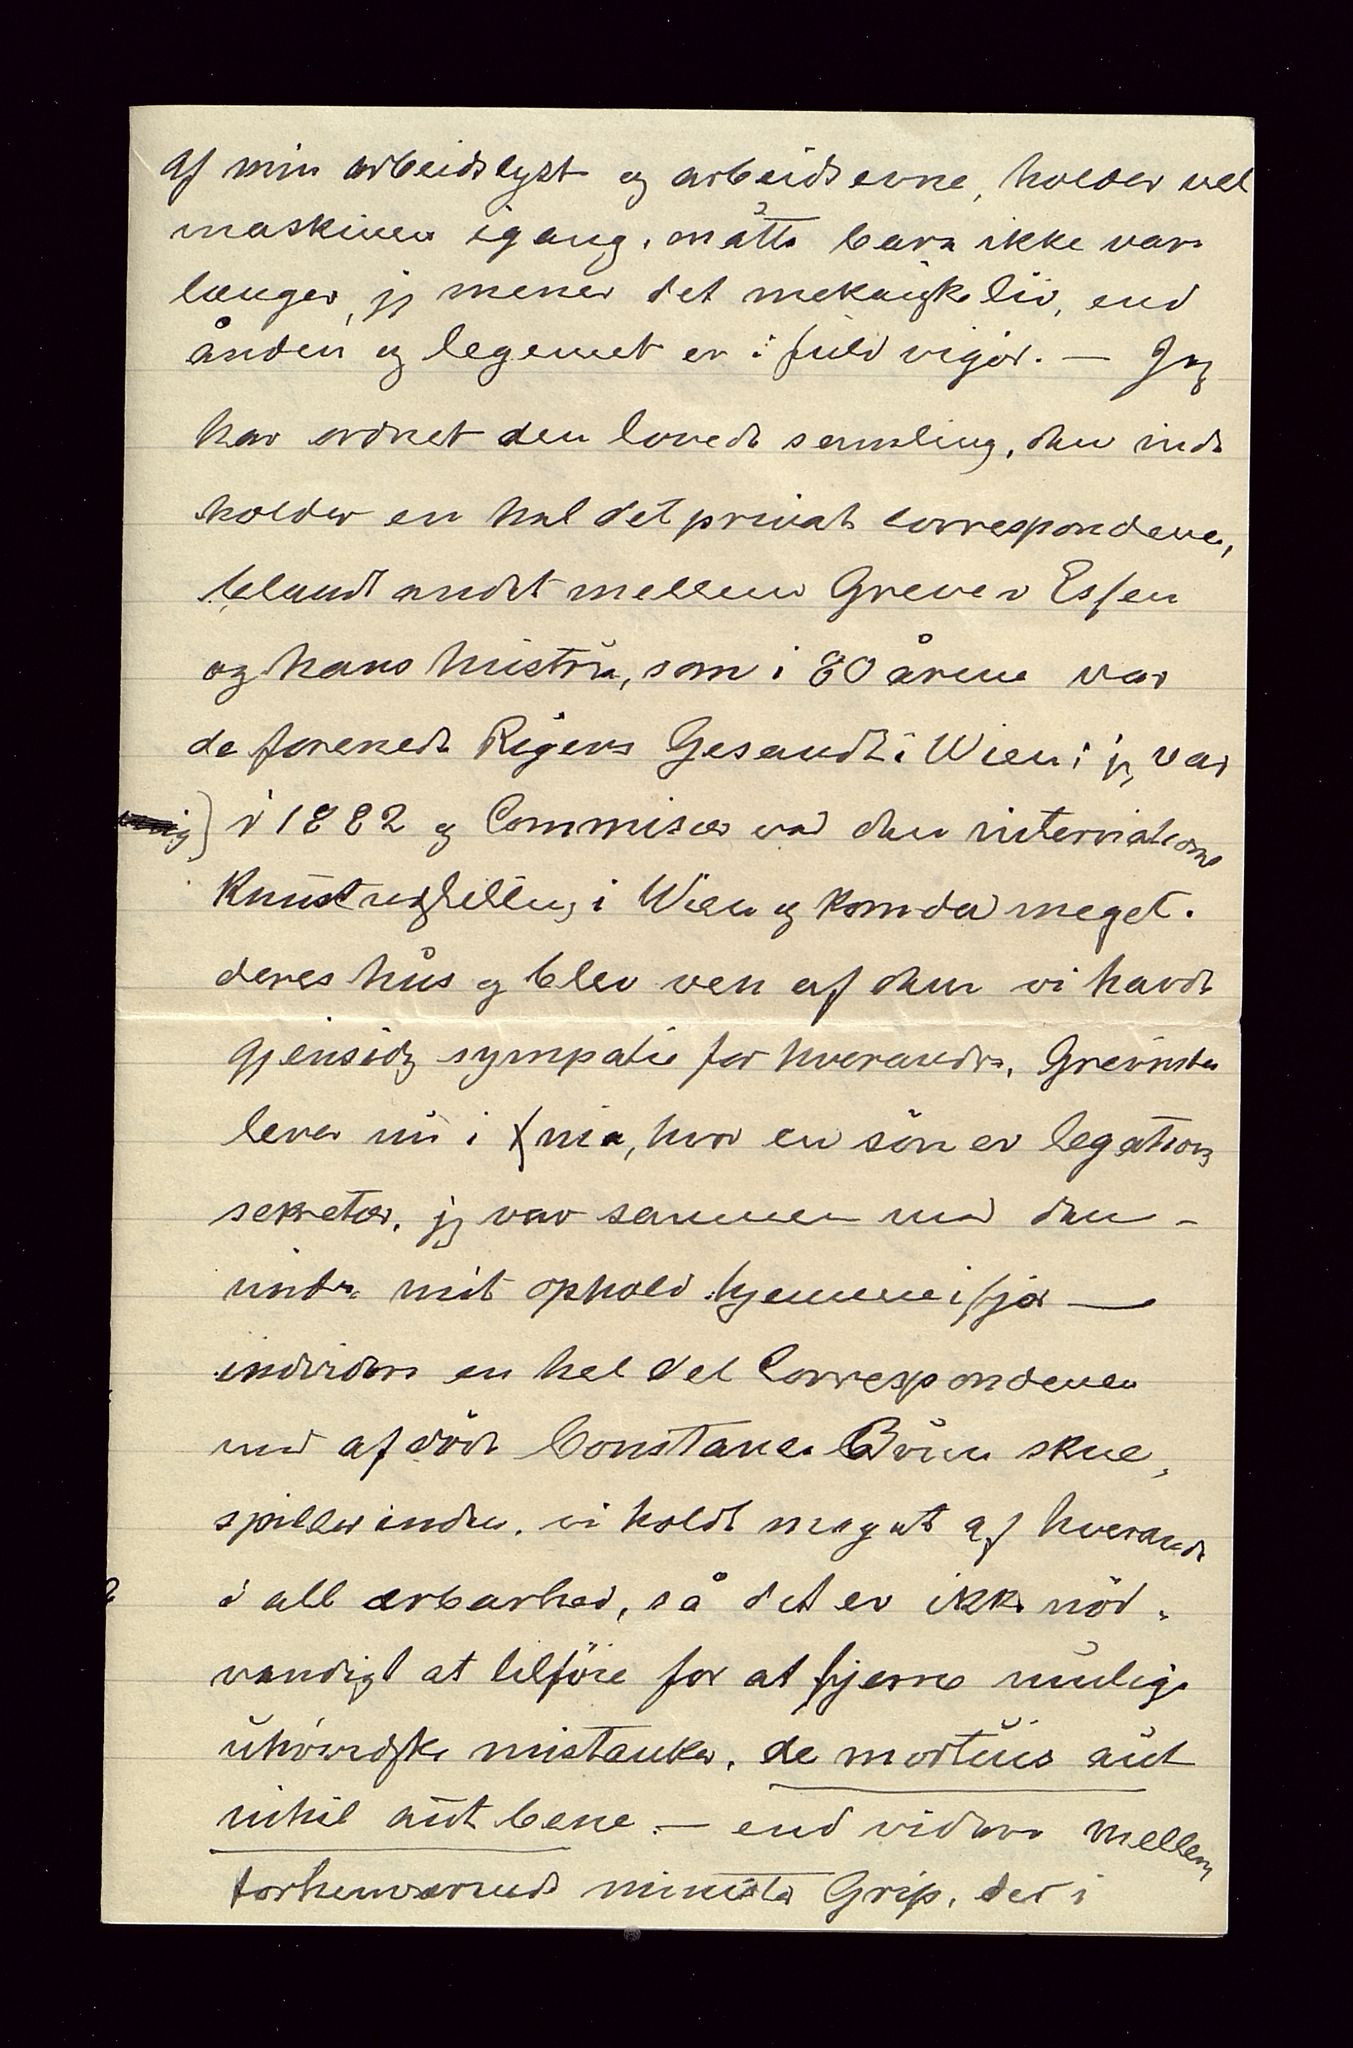 af min arbeidslyst og arbeidsevne, holder vel
maskinen igang, måtte bare ikke vare
længer, jeg mener det mekaniske liv, end
ånden og legemet er i fuld vigør. — Jeg
har ordnet den lovede samling, den inde
holder en hel del private correspondence,
blandt andet mellem Greven Essen
og hans hustru, som i 80 årene var
de forenede Rigers Gesandt i Wien; jeg var
i 1882 og Commisær ved den internationale
Kunstudstilling i Wien og kom da meget i
deres hus og blev ven af dem vi havde
gjensidig sympatie for hverandre, Grevinden
lever nu i Xnia, hvor en søn er legations
sekretær, jeg var sammen med dem
under mit ophold hjemme ifjor —
endvidere en hel del Correspondence
med afdøde Constance Bruun skue,
spillerinden, vi holdt meget af hverandre
i all ærbarhed, så det er ikke nød,
vendigt at tilføie for at fjerne mulige
uhøvidske mistanker, de mortuis aut
nihil aut bene — end videre mellem
forhenværende minister Grip, der i